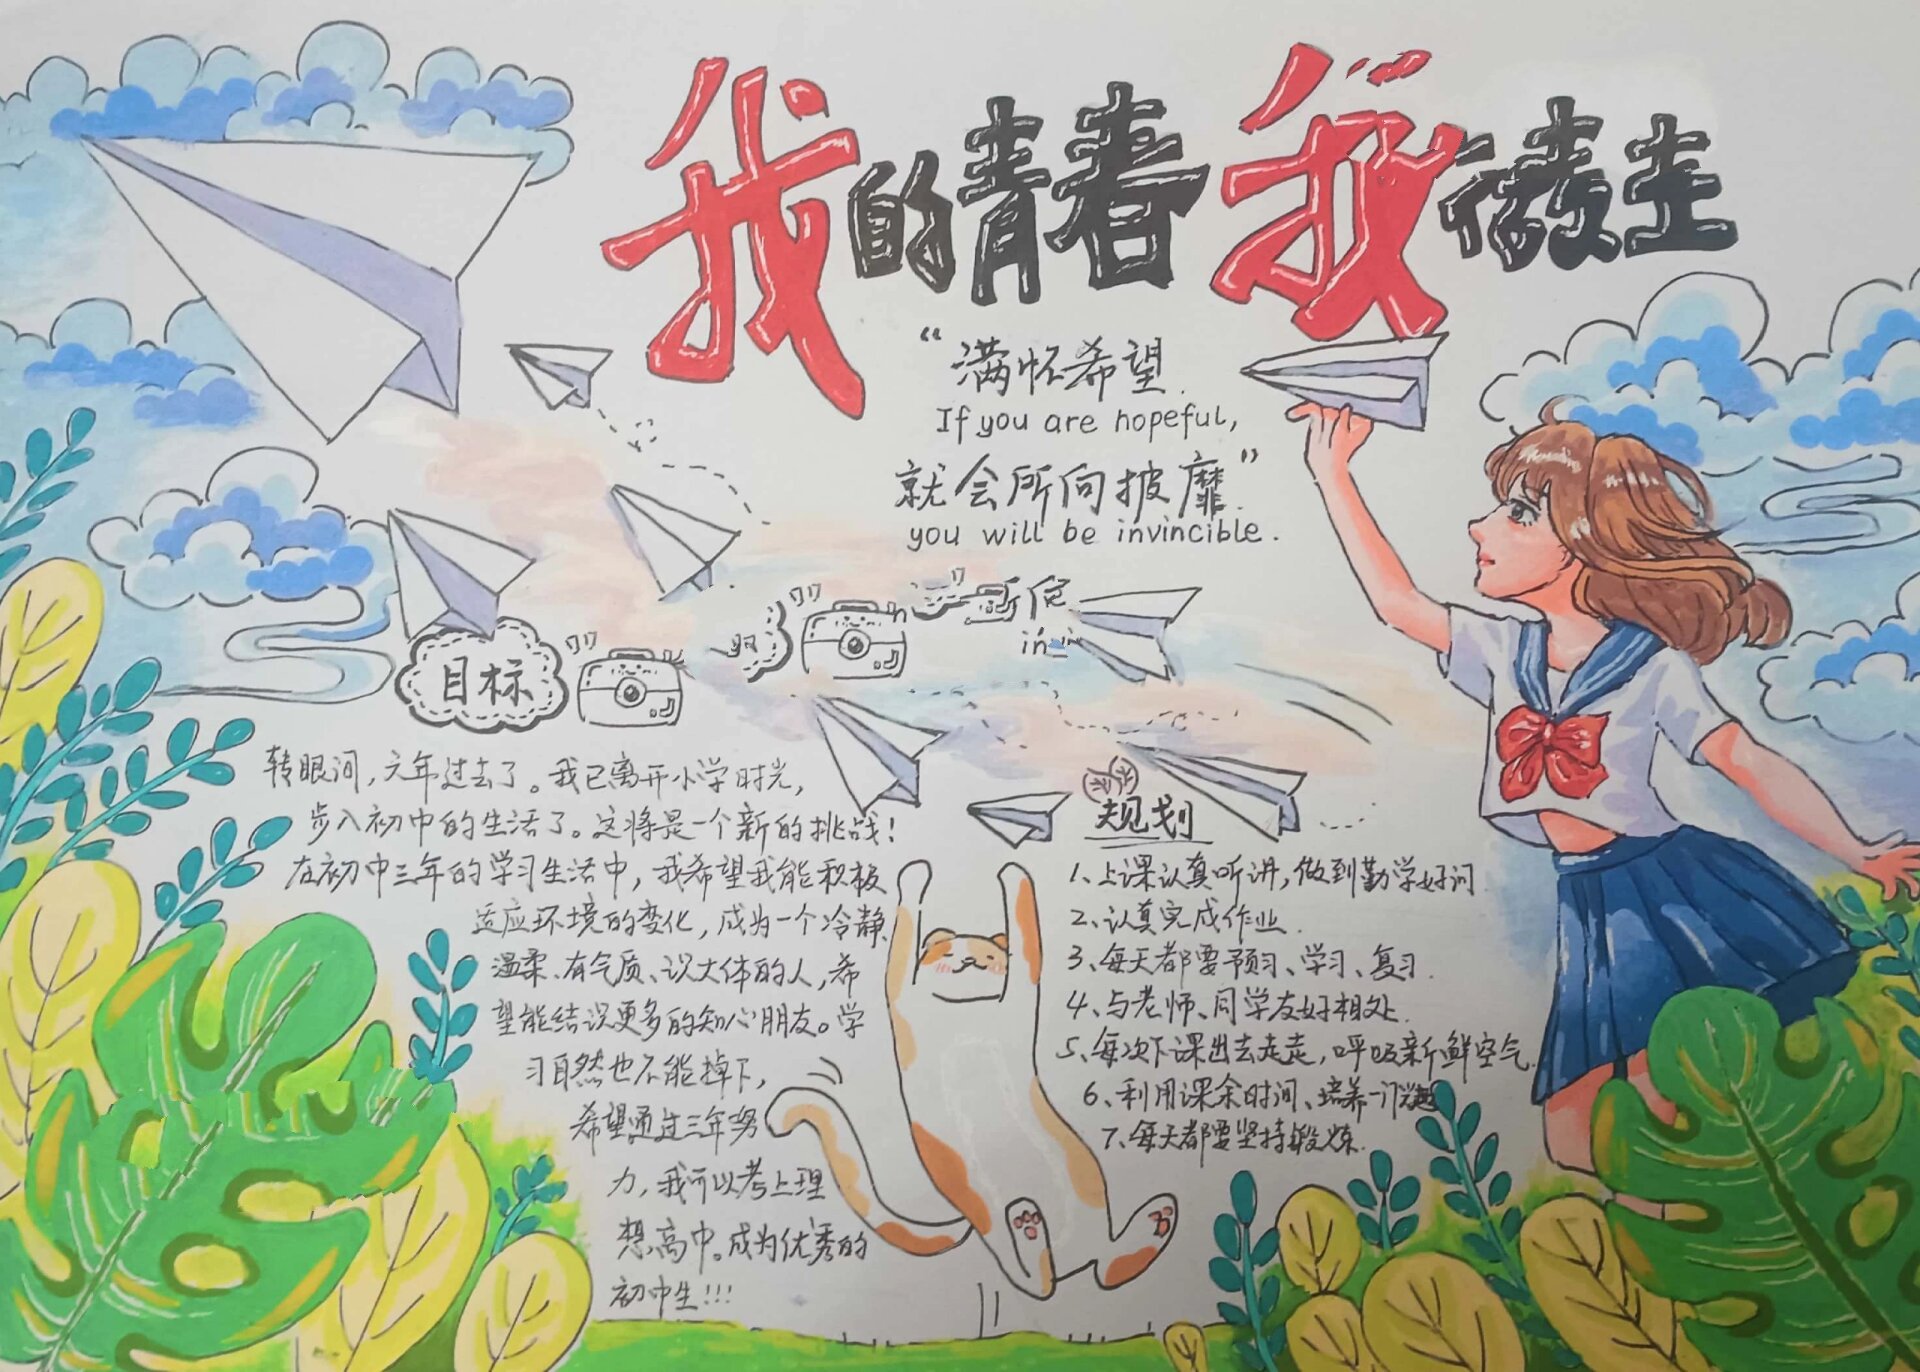 我的青春我做主
“满怀希望
If you are hopeful,
就会所向披靡”
you will be invincible.
目标
转眼间,六年过去了。我已离开小学时光,
步入初中的生活了。这将是一个新的挑战!
在初中三年的学习生活中,我希望我能积极
适应环境的变化,成为一个冷静、
温柔、有气质、识大体的人,希
望能结识更多的知心朋友。学
习自然也不能掉下,
希望通过三年努
力,我可以考上理
想高中。成为优秀的
初中生!!!
规划
1、上课认真听讲,做到勤学好问
2、认真完成作业.
3、每天都要预习、学习、复习.
4、与老师、同学友好相处.
5、每次下课出去走走,呼吸新鲜空气.
6、利用课余时间、培养一门
7、每天都要坚持锻炼.